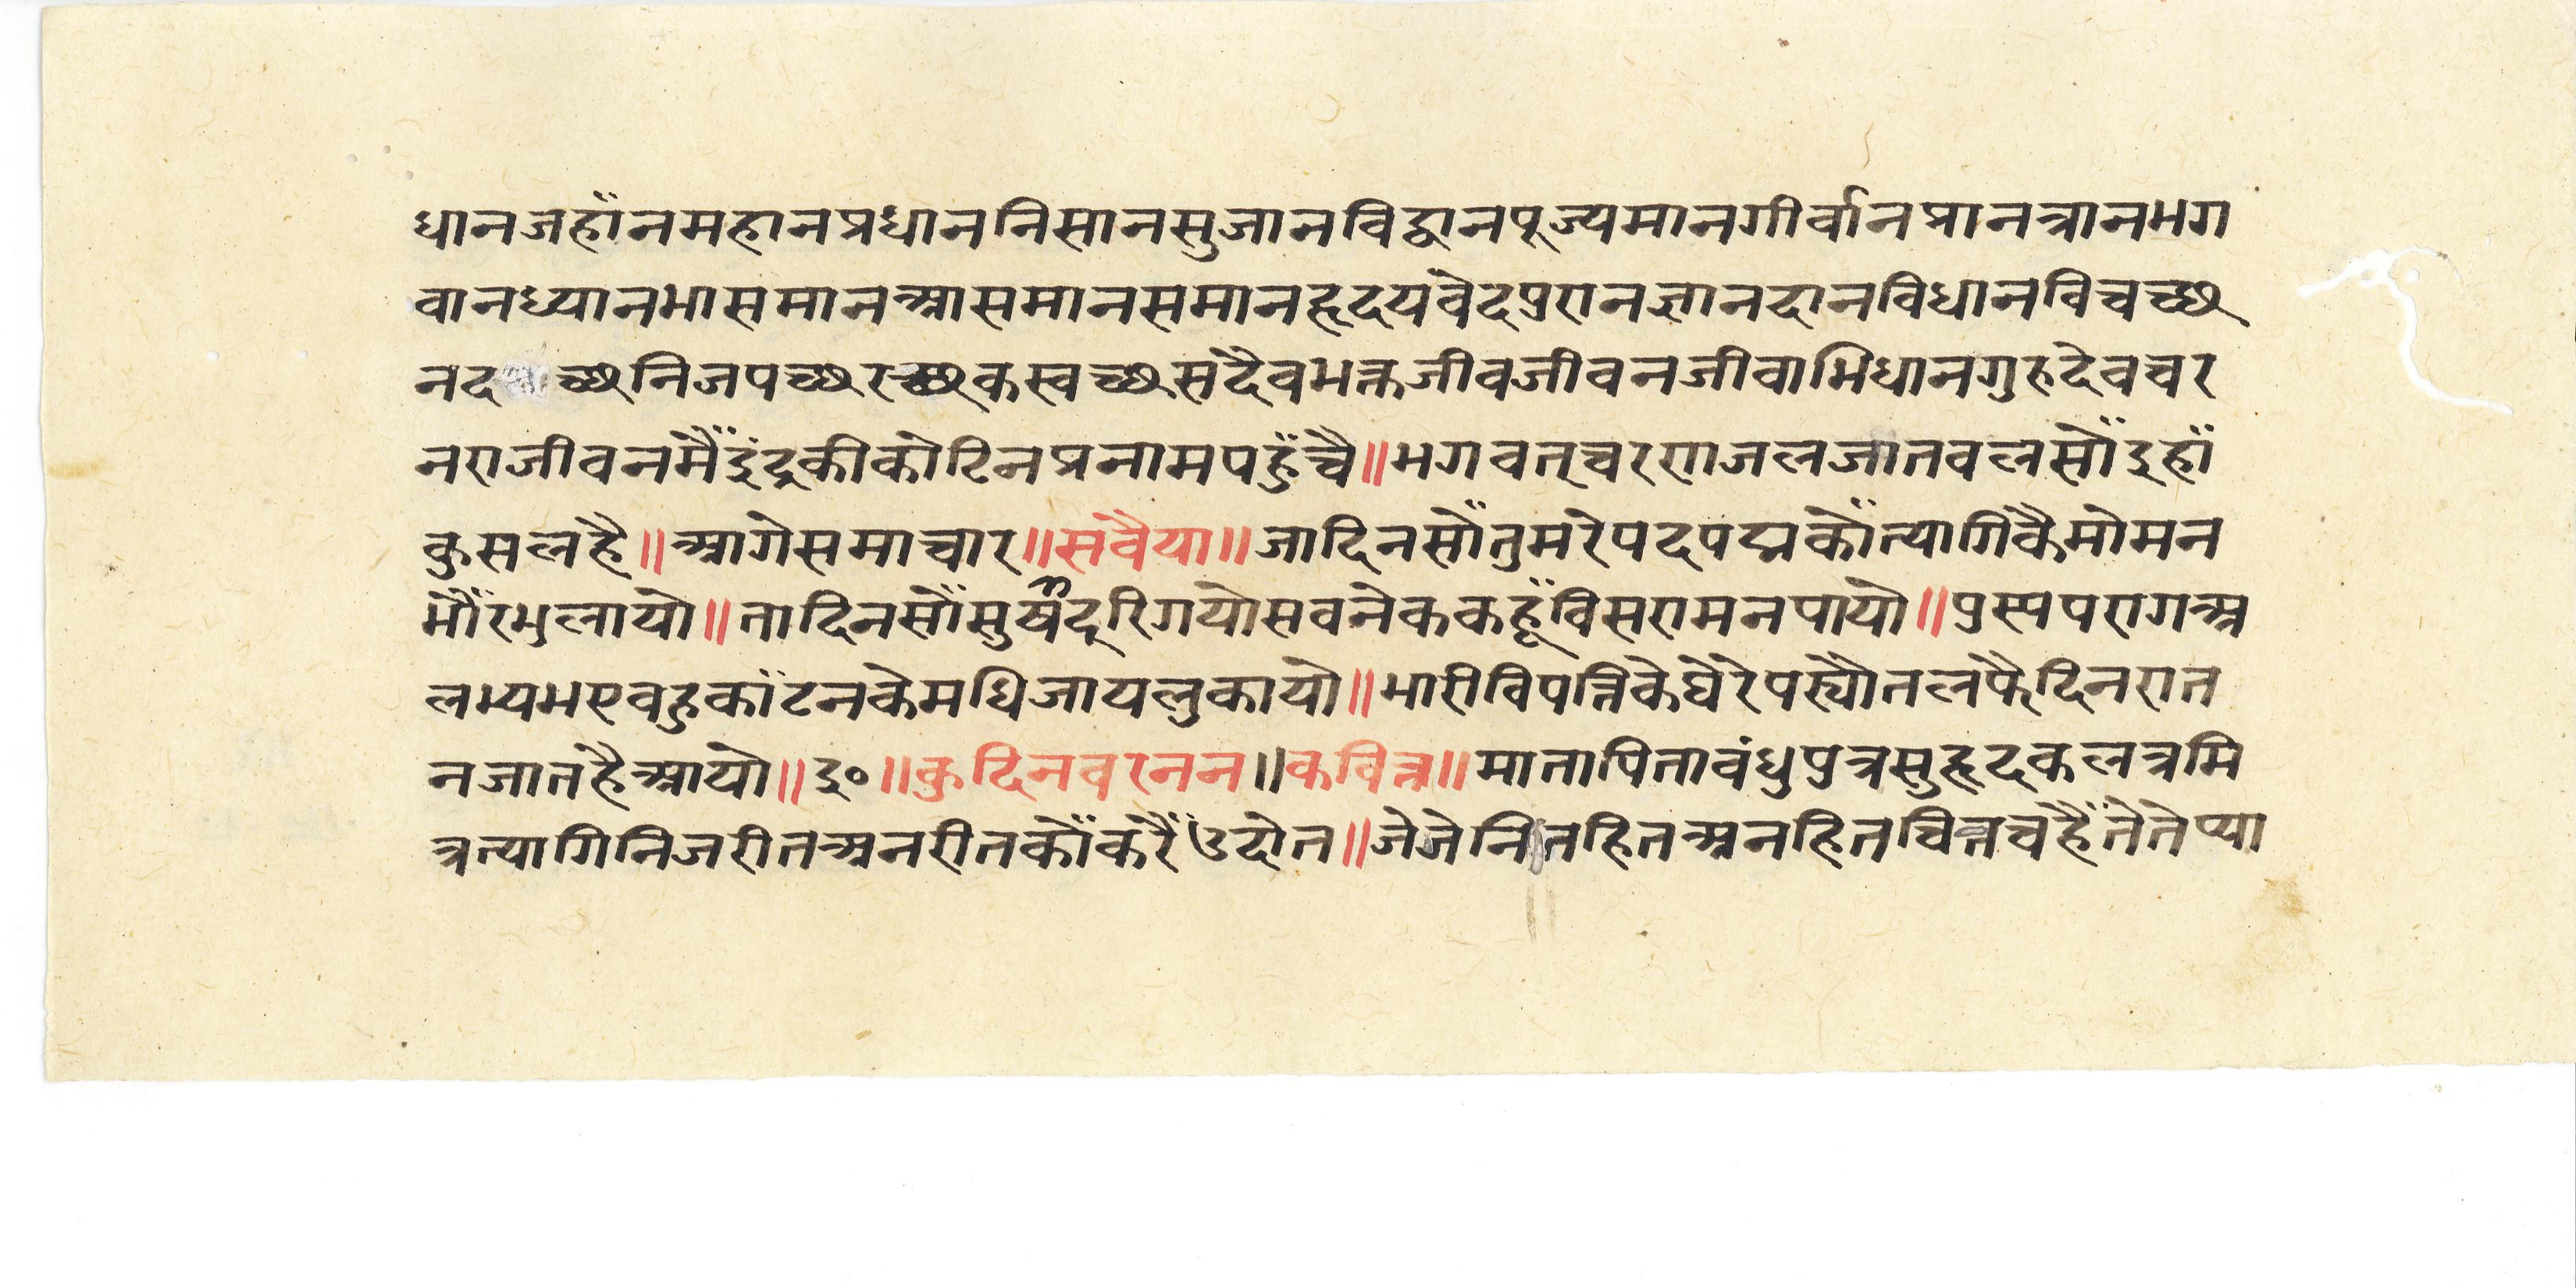 धानजहाँनमहानप्रधाननिसानसुजानविद्वानपूज्यमानगीर्वानप्रानत्रानभग
वानध्यानभासमानआसमानसमानहृदयवेदपुरानज्ञानदानविधानविचच्छ
नद च्छनिजपच्छरच्छकस्वच्छसदैवभक्तजीवजीवनजीवाभिधानगुरुदेवचर
नराजीवनमैँइंदुकीकोटिनप्रनामपहुँचै॥भगवत्चरणजलजातवलसोँइहाँ
कुसलहै॥आगेसमाचार॥सवैया॥जादिनसोँतुमरेपदपद्मकोँत्यागिकैमोमन
भौँरभुलायो॥तादिनसोँसुषदूरिगयोसवनेककहूँविसरामनपायो॥पुस्पपरागअ
लभ्यभएवहुकाँटनकेमधिजायलुकायो॥भारीविपत्तिकेघेरेपर्‍यौतलफैदिनरात
नजातहैआयो॥इ०॥कुदिनवरनन॥कवित्त॥मातापितावंधुपुत्रसुहृदकलत्रमि
त्रत्यागिनिजरीतअनरीतकोँकरैँउदोत॥जेजेनितहितअनहितचित्तचहैँतेतेप्या